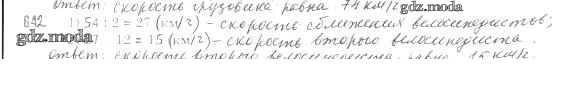 Ответ: скорость грузовика равна 74 км/г gdz.moda
642 1) 54 : 2 = 27 (км/г) - скорость сближения велосипедистов;
gdz.moda 12 = 15 (км/г) - скорость второго велосипедиста.
Ответ: скорость второго велосипедиста равна 15 км/г.